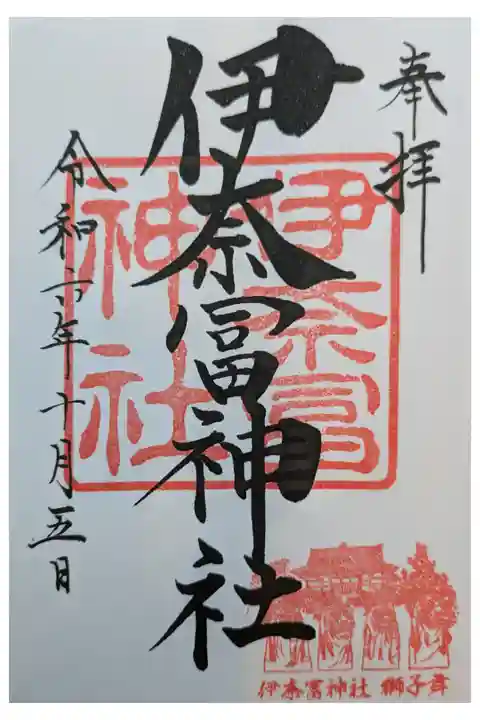 奉拝
伊奈冨神社
伊奈冨神社
令和六年十月五日
伊奈冨神社 獅子舞